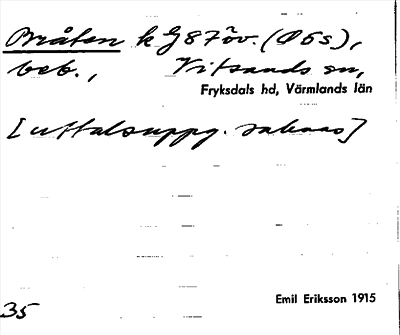 Bråten k G87 öv. (Ø6s),
beb., Vitsands sn,
Fryksdals hd, Värmlands län
[uttalsuppg. saknas]
35
Emil Eriksson 1915